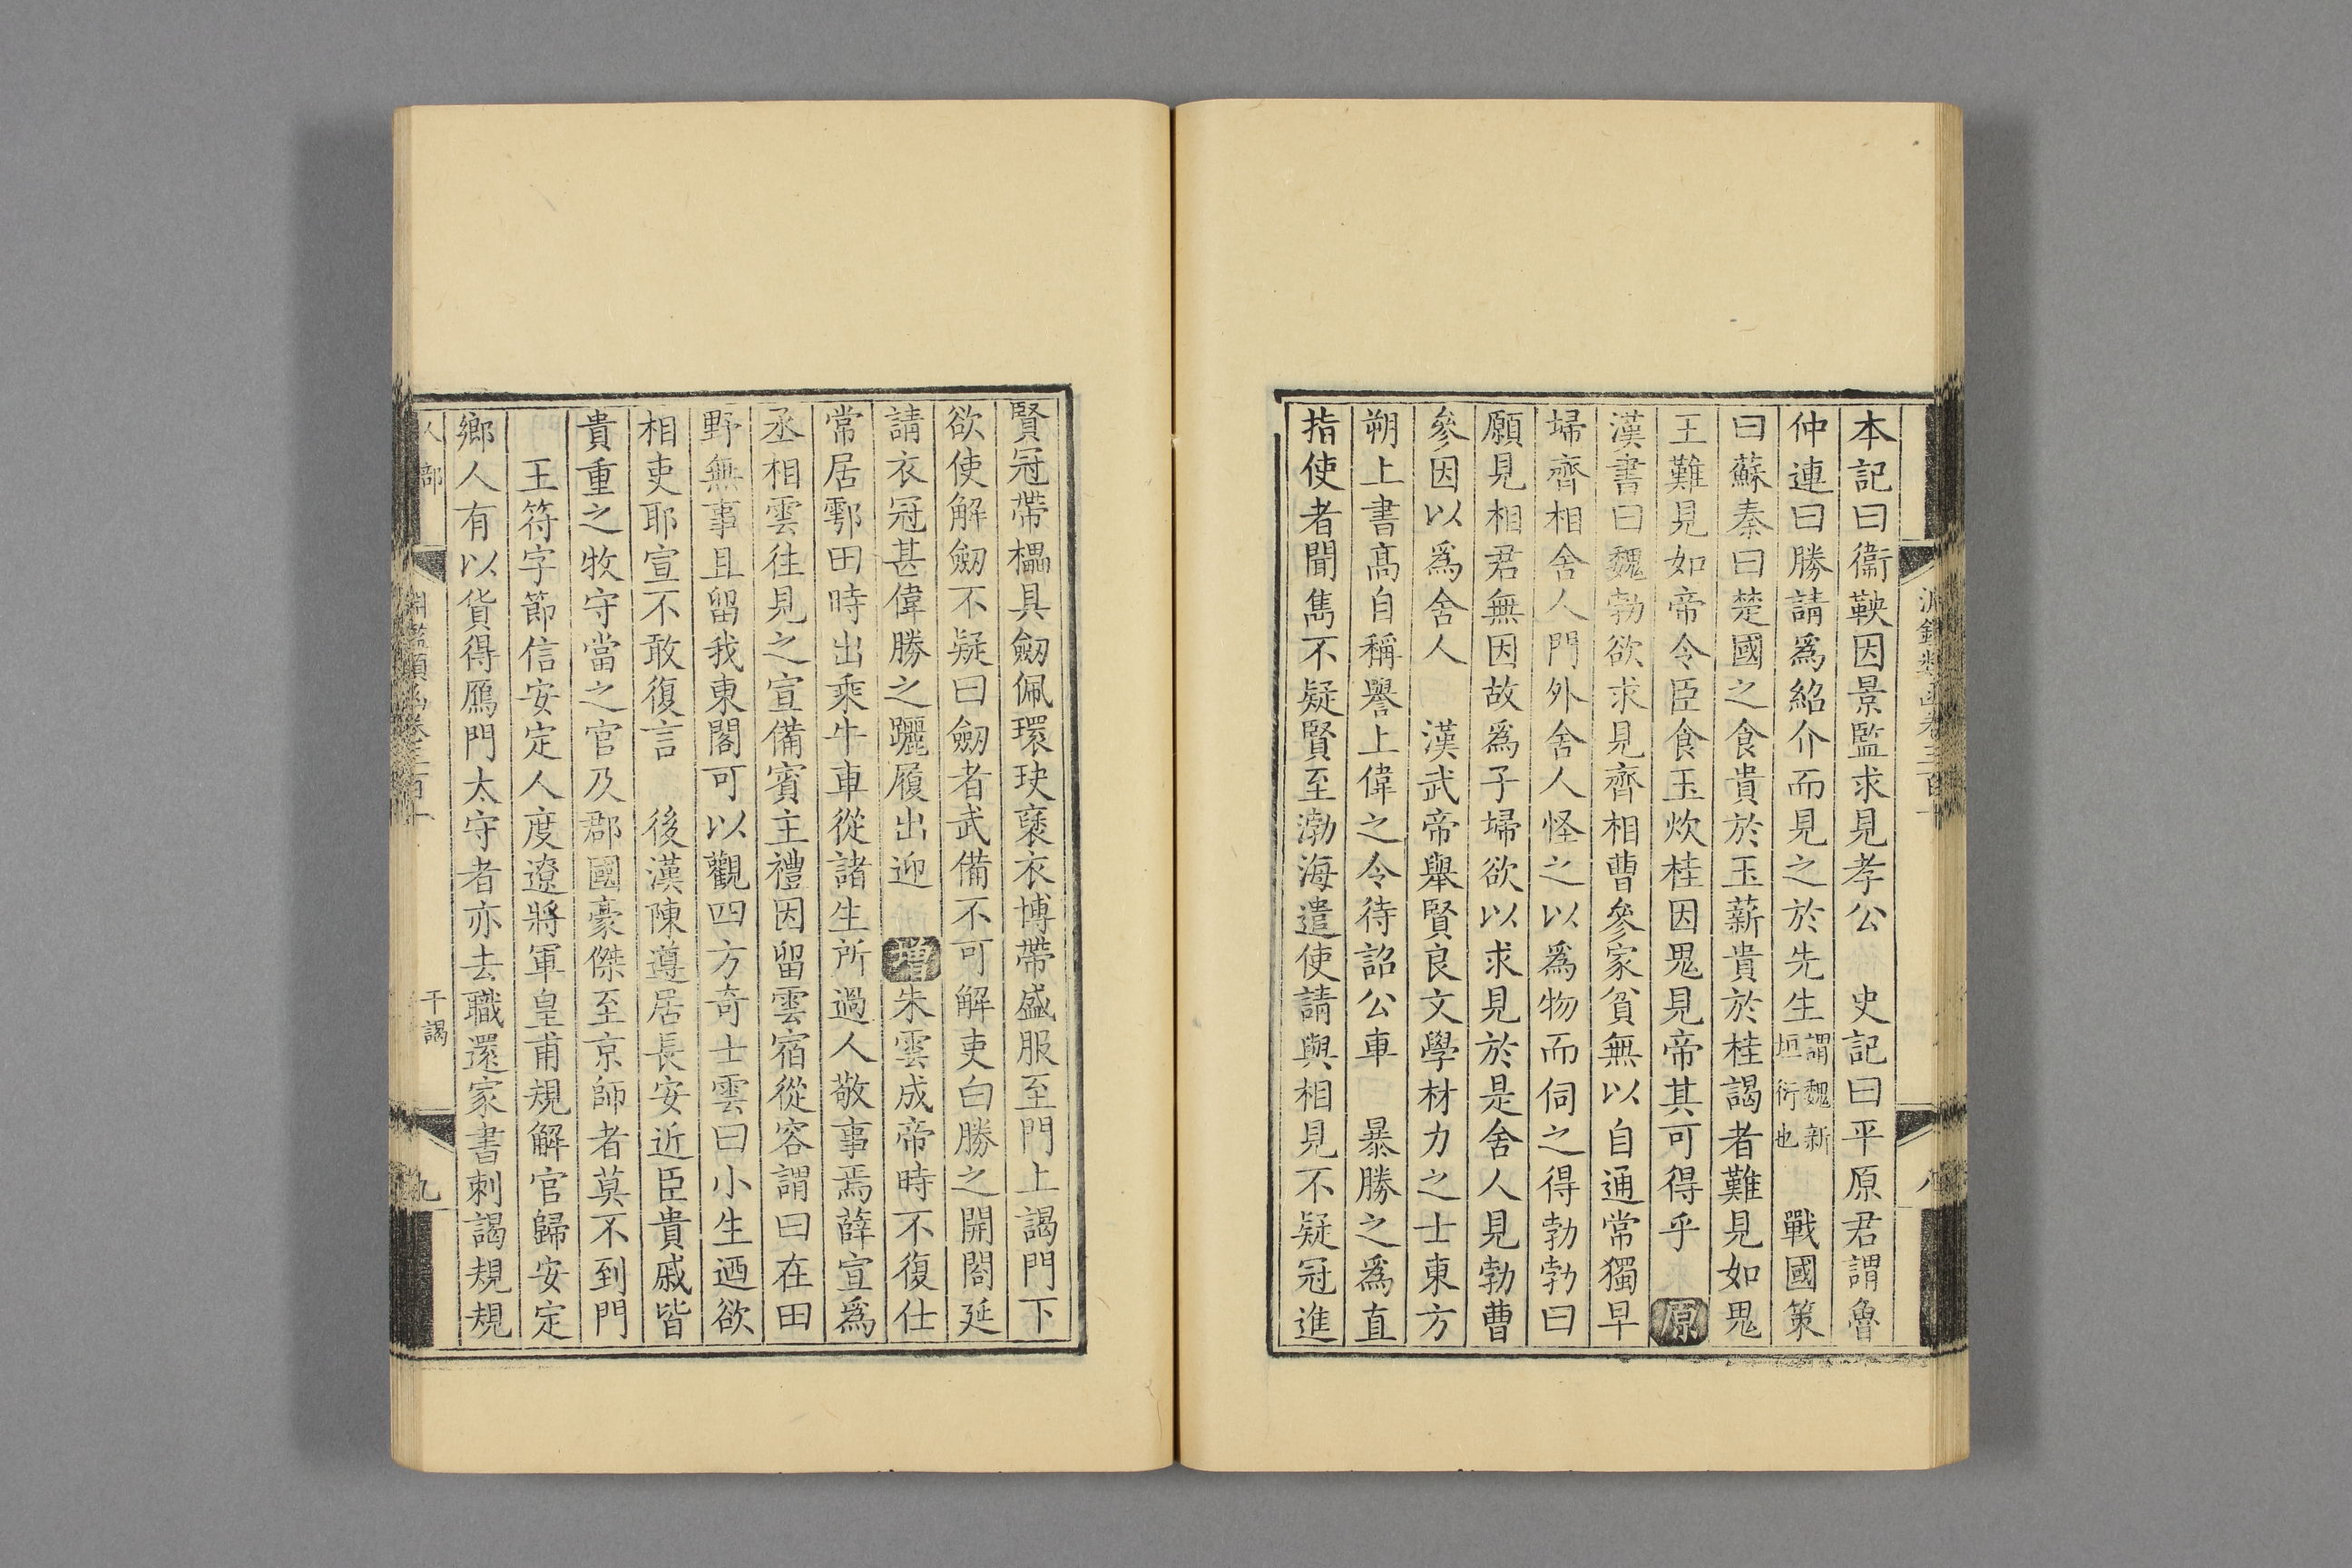 本記曰衞鞅因景監求見孝公　史記曰平原君謂魯
仲連曰勝請爲紹介而見之於先生謂魏新垣衍也　戰國策
曰蘇秦曰楚國之食貴於玉薪貴於桂謁者難見如鬼
王難見如帝令臣食玉炊桂因鬼見帝其可得乎　原
漢書曰魏勃欲求見齊相曹參家貧無以自通常獨早
埽齊相舍人門外舍人怪之以爲物而伺之得勃勃曰
願見相君無因故爲子埽欲以求見於是舍人見勃曹
參因以爲舍人　漢武帝舉賢良文學材力之士東方
朔上書高自稱譽上偉之令待詔公車　暴勝之爲直
指使者聞雋不疑賢至渤海遣使請與相見不疑冠進
賢冠帶櫑具劒佩環玦襃衣博帶盛服至門上謁門下
欲使解劒不疑曰劒者武備不可解吏白勝之開閤延
請衣冠甚偉勝之躧履出迎　增朱雲成帝時不復仕
常居鄠田時出乘牛車從諸生所過人敬事焉薛宣爲
丞相雲往見之宣備賓主禮因留雲宿從容謂曰在田
野無事且留我東閣可以觀四方奇士雲曰小生迺欲
相吏耶宣不敢復言　後漢陳遵居長安近臣貴戚皆
貴重之牧守當之官及郡國豪傑至京師者莫不到門
王符字節信安定人度遼將軍皇甫規解官歸安定
鄉人有以貨得鴈門太守者亦去職還家書刺謁規規
人部
淵鑑類函卷三百十
干謁
九